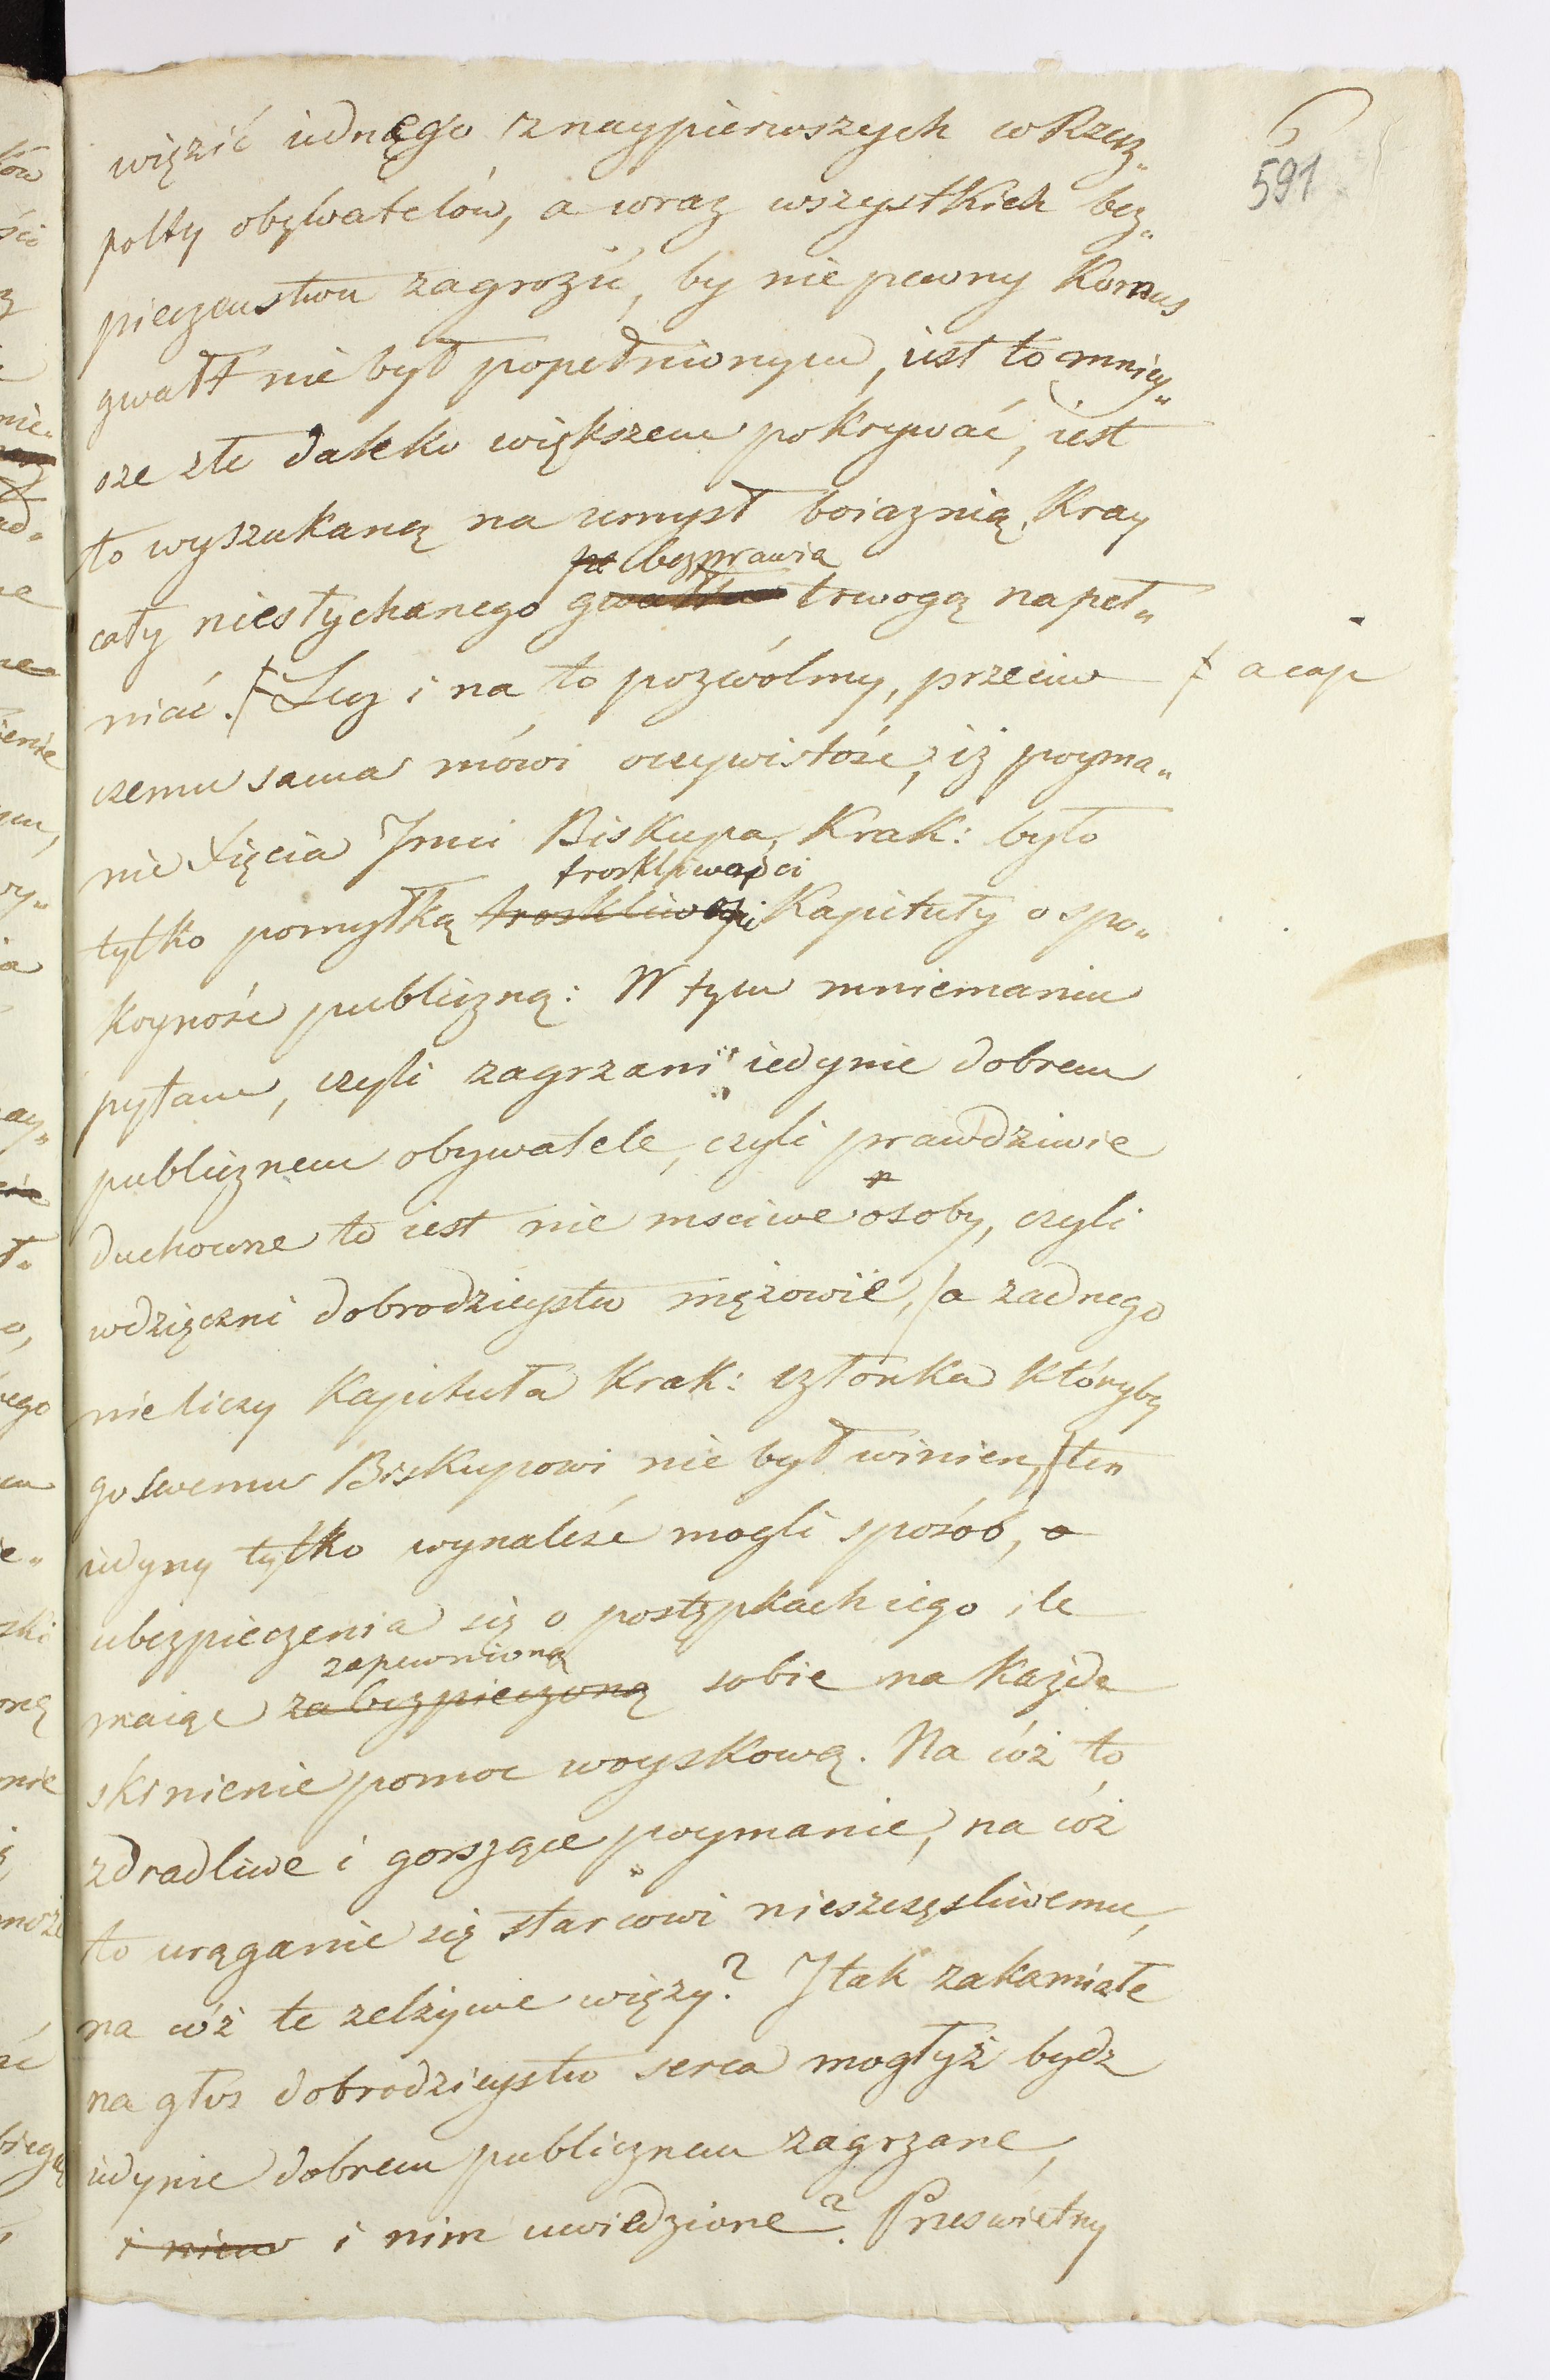 591
więzić iednego z naypierwszych w Rzeczˮ
polty obywatelów, a wraz wszystkich bezˮ
pieczenstwu zagrozić, by nie pewny komus
gwałt nie był popełnionym, iest to mnieyˮ
sze złe daleko większem pokrywać, iest
to wyszukaną na umysł boiaznią, Kray
bezprawia
cały niesłychanego gwałtu trwogą napełˮ
niać. Lecz i na to pozwólmy, przeciw ⌿ a cap
czemu sama mówi oczywistość, iż poymaˮ
nie Xięcia Jmci Biskupa Krak: było
troskliwości
tylko pomyłką troskliwości Kapituły o spoˮ
koyność publiczną: W tym mniemaniu
pytam, czyli zagrzani iedynie dobrem
publicznem obywatele, czyli prawdziwie
duchowne to iest nie msciwe osoby, czyli
wdzięczni dobrodzieystw mężowie, /a zadnego
nie liczy Kapituła Krak: członka któryby
go swemu Biskupowi nie był winien,/ ten
iedyny tylko wynaleść mogli sposób, o
ubezpieczenia się o postępkach iego ile
zapewnioną
maiąc zabezpieczoną sobie na każde
skinienie pomoc woyskową. Na cóż to
zdradliwe i gorszące poymanie, na cóż
to urąganie się starcowi nieszczęsliwemu,
na cóż te zelżywe więzy? I tak zakamiałe
na głos dobrodzieystw serca mogłyż bydz
iedynie dobrem publicznem zagrzane,
i niem i nim uwiedzione? Przeswietny